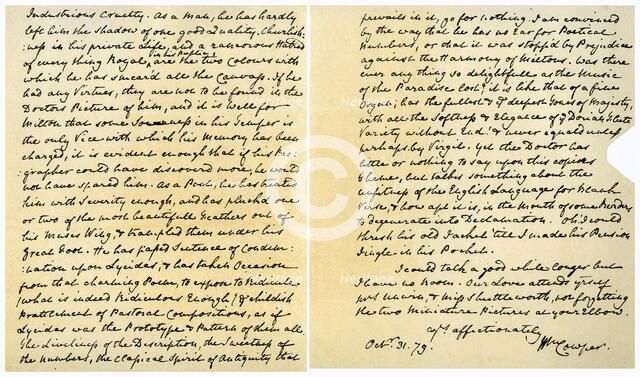 Industrious Cruelty. As a Man, he has hardly
left him the Shadow of one good Quality, Churlish:
:ness in his private Life, and a rancorous Hatred
in his Public
of every thing Royal, are the two Colours with
which he has smear'd all the Canvass. If he
had any Virtues, they are not to be found in the
Doctors Picture of him, and it is well for
Milton that some Sourness in his Temper is
the only Vice with which his Memory has been
charged, it is evident enough that if his Bio:
:grapher could have discovered more, he would
not have spared him. As a Poet, he has treated
him with Severity enough, and has pluck'd one
or two of the most beautifull Feathers out of
his Muses Wing, & trampled them under his
Great Foot. He has passed Sentence of Condem:
:nation upon Lycidas, & has taken Occasion
from that charming Poem, to expose to Ridicule
(what is indeed Ridiculous Enough) the childish
Prattlement of Pastoral Compositions, as if
Lycidas was the Prototype & Pattern of them all.
The Liveliness of the Description, the Sweetness of
the Numbers, the Classical Spirit of Antiquity that
prevails in it, go for nothing. I am convinced
by the way that he has no Ear for Poetical
Numbers, or that it was stopp'd by Prejudice
against the Harmony of Miltons. Was there
ever any thing so delightfull as the Music
of the Paradise Lost? it is like that of a fine
Organ; has the fullest & ye deepest Tones of Majesty,
with all the Softness & Elegance of ye Dorian Flute.
Variety without End! & never equal'd unless
perhaps by Virgil. Yet the Doctor has
little or nothing to say upon this copious
Theme, but talks something about the
unfitness of the English Language for Blank
Verse, & how apt it is, in the Mouth of some Readers
to degenerate into Declamation. Oh! I could
thresh his old Jacket 'till I made his Pension
Jingle in his Pocket.
I could talk a good while longer but
I have no Room. Our Love attends yrself
Mrs Unwin, & Miss Shuttleworth, not forgetting
the two Miniature Pictures at your Elbow.
yrs affectionately
Wm Cowper.
Octr. 31. 79.